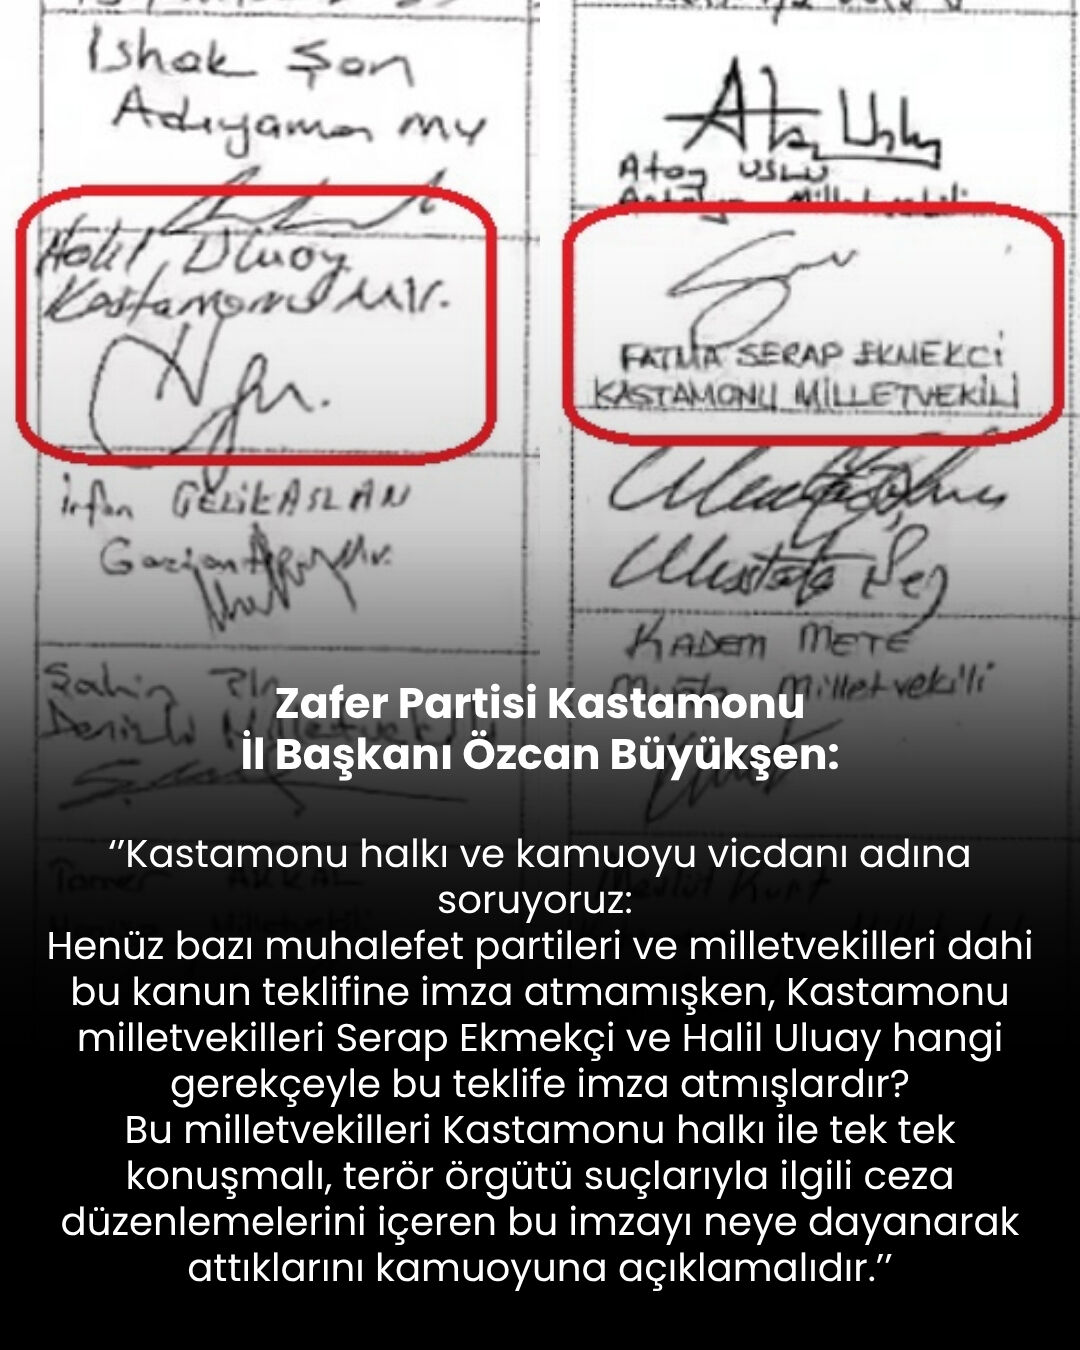 Ishak Şan
Adıyaman MV
Halil Uluay
Kastamonu Mlv.
İrfan ÇELİKASLAN
Gaziantep Mlv.
Şahin
Denizli Milletvekili
Tamer AKKAL
Milletvekili
Atay Uslu
Atay USLU
Antalya Milletvekili
FATMA SERAP EKMEKCİ
KASTAMONU MİLLETVEKİLİ
Mustafa
KADEM METE
Muğla Milletvekili
Mevlüt Kurt
Zafer Partisi Kastamonu
İl Başkanı Özcan Büyükşen:
‘’Kastamonu halkı ve kamuoyu vicdanı adına
soruyoruz:
Henüz bazı muhalefet partileri ve milletvekilleri dahi
bu kanun teklifine imza atmamışken, Kastamonu
milletvekilleri Serap Ekmekçi ve Halil Uluay hangi
gerekçeyle bu teklife imza atmışlardır?
Bu milletvekilleri Kastamonu halkı ile tek tek
konuşmalı, terör örgütü suçlarıyla ilgili ceza
düzenlemelerini içeren bu imzayı neye dayanarak
attıklarını kamuoyuna açıklamalıdır.’’